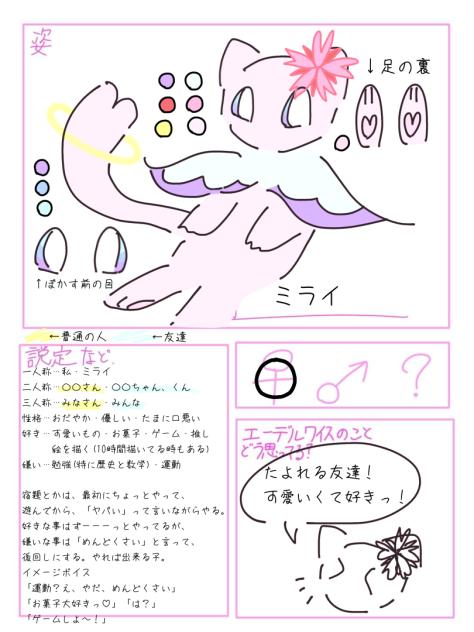 姿
↓足の裏
↑ぼかす前の目
ミライ
←普通の人 ←友達
設定など
一人称…私・ミライ
二人称…〇〇さん・〇〇ちゃん、くん
三人称…みなさん・みんな
性格…おだやか・優しい・たまに口悪い
好き…可愛いもの・お菓子・ゲーム・推し
絵を描く(10時間描いてる時もある)
嫌い…勉強(特に歴史と数学)・運動
宿題とかは、最初にちょっとやって、
遊んでから、「ヤバい」って言いながらやる。
好きな事はずーーーっとやってるが、
嫌いな事は「めんどくさい」と言って、
後回しにする。やれば出来る子。
イメージボイス
「運動?え、やだ、めんどくさい」
「お菓子大好きっ♡」「は?」
「ゲームしよ〜!」
♀ ♂ ?
エーデルワイスのこと
どう思ってる?
たよれる友達!
可愛いくて好きっ!